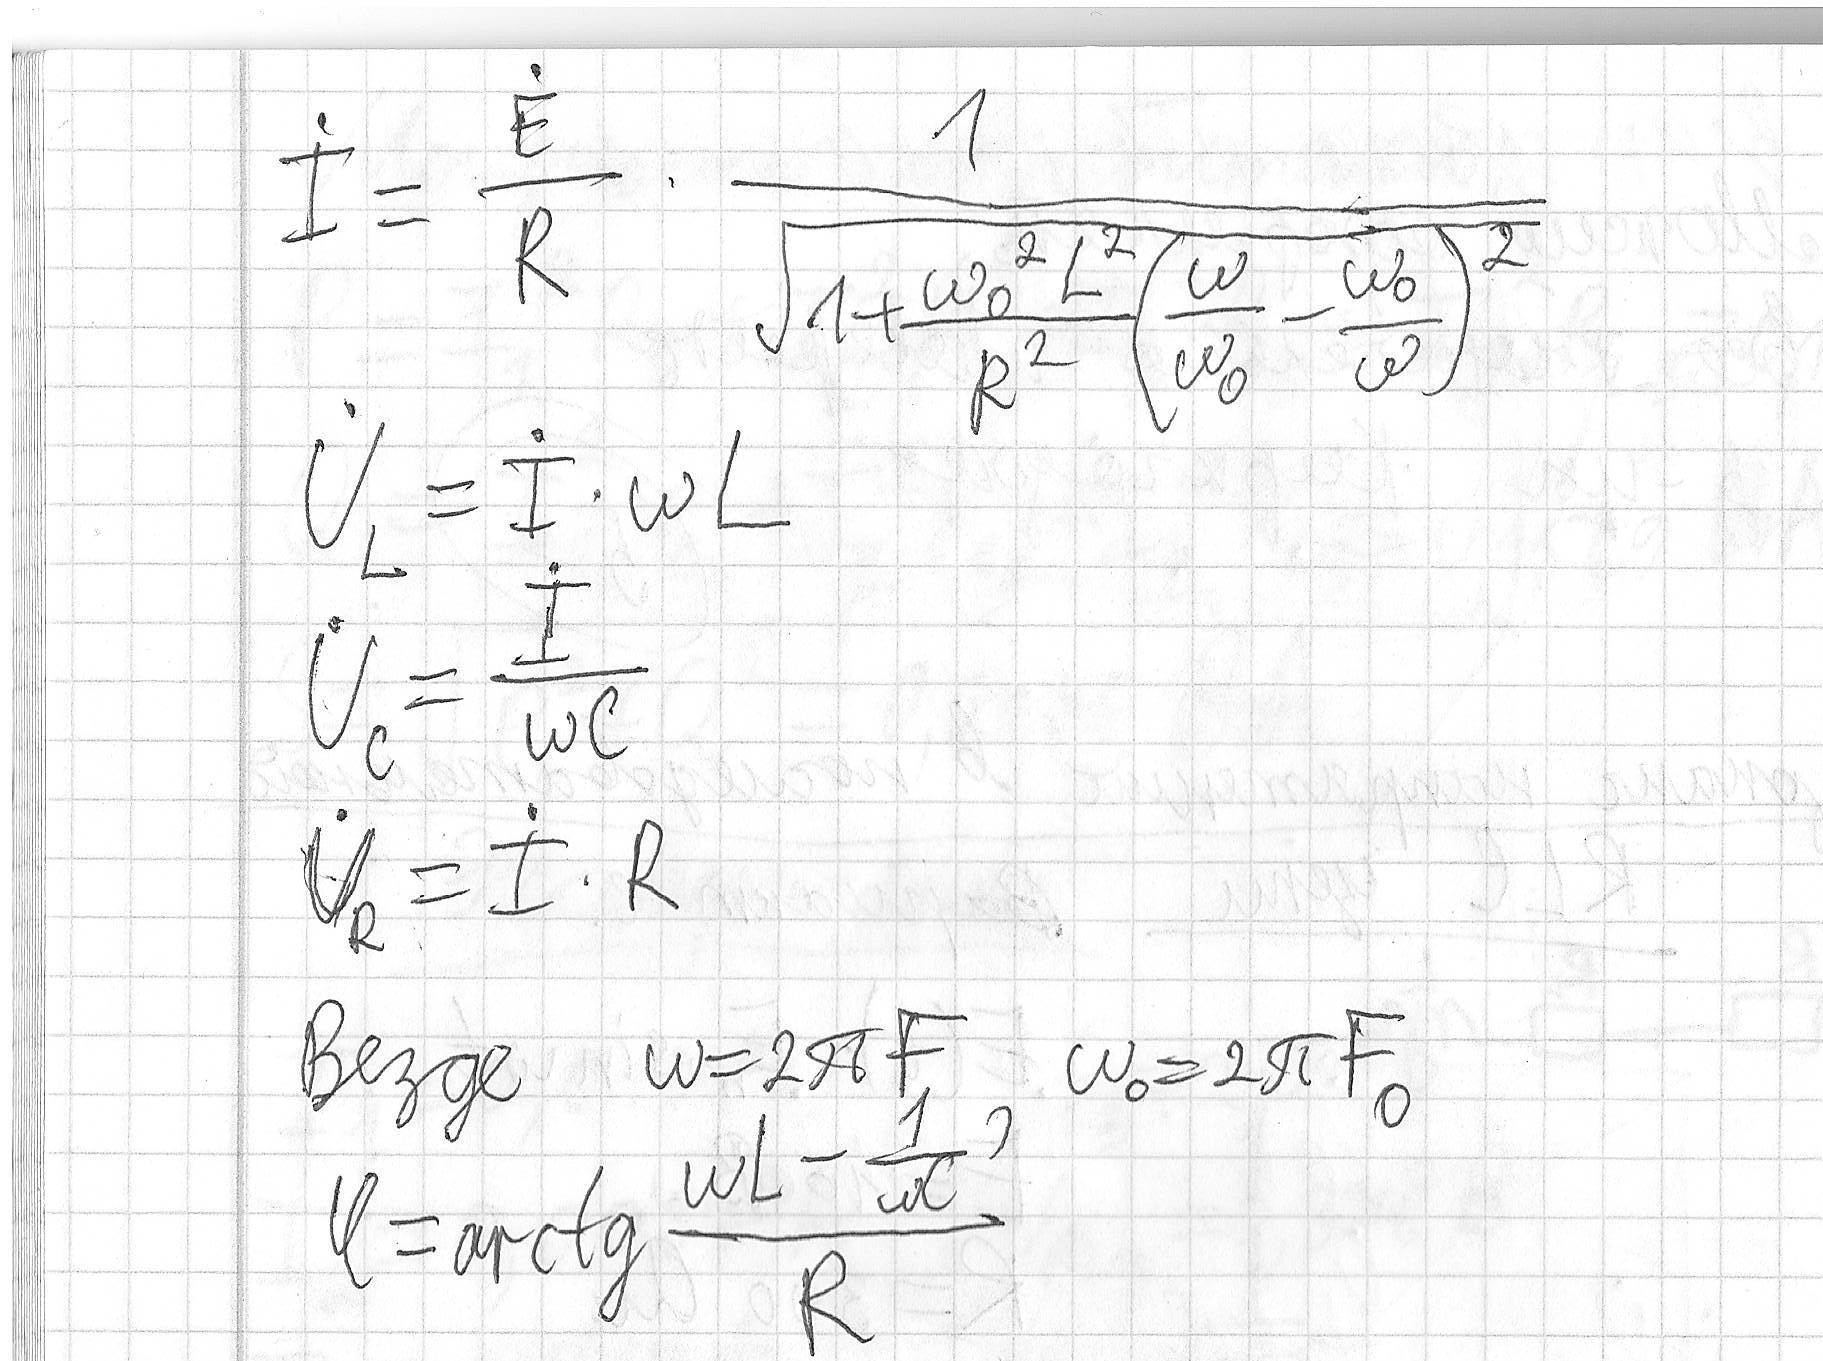 İ = Ė/R · 1/√(1+ω₀²L²/R² (ω/ω₀ − ω₀/ω)²)
U̇_L = İ · ωL
U̇_C = İ/ωC
U̇_R = İ · R
Везде ω=2πF, ω₀=2πF₀
φ = arctg (ωL − 1/ωC)/R